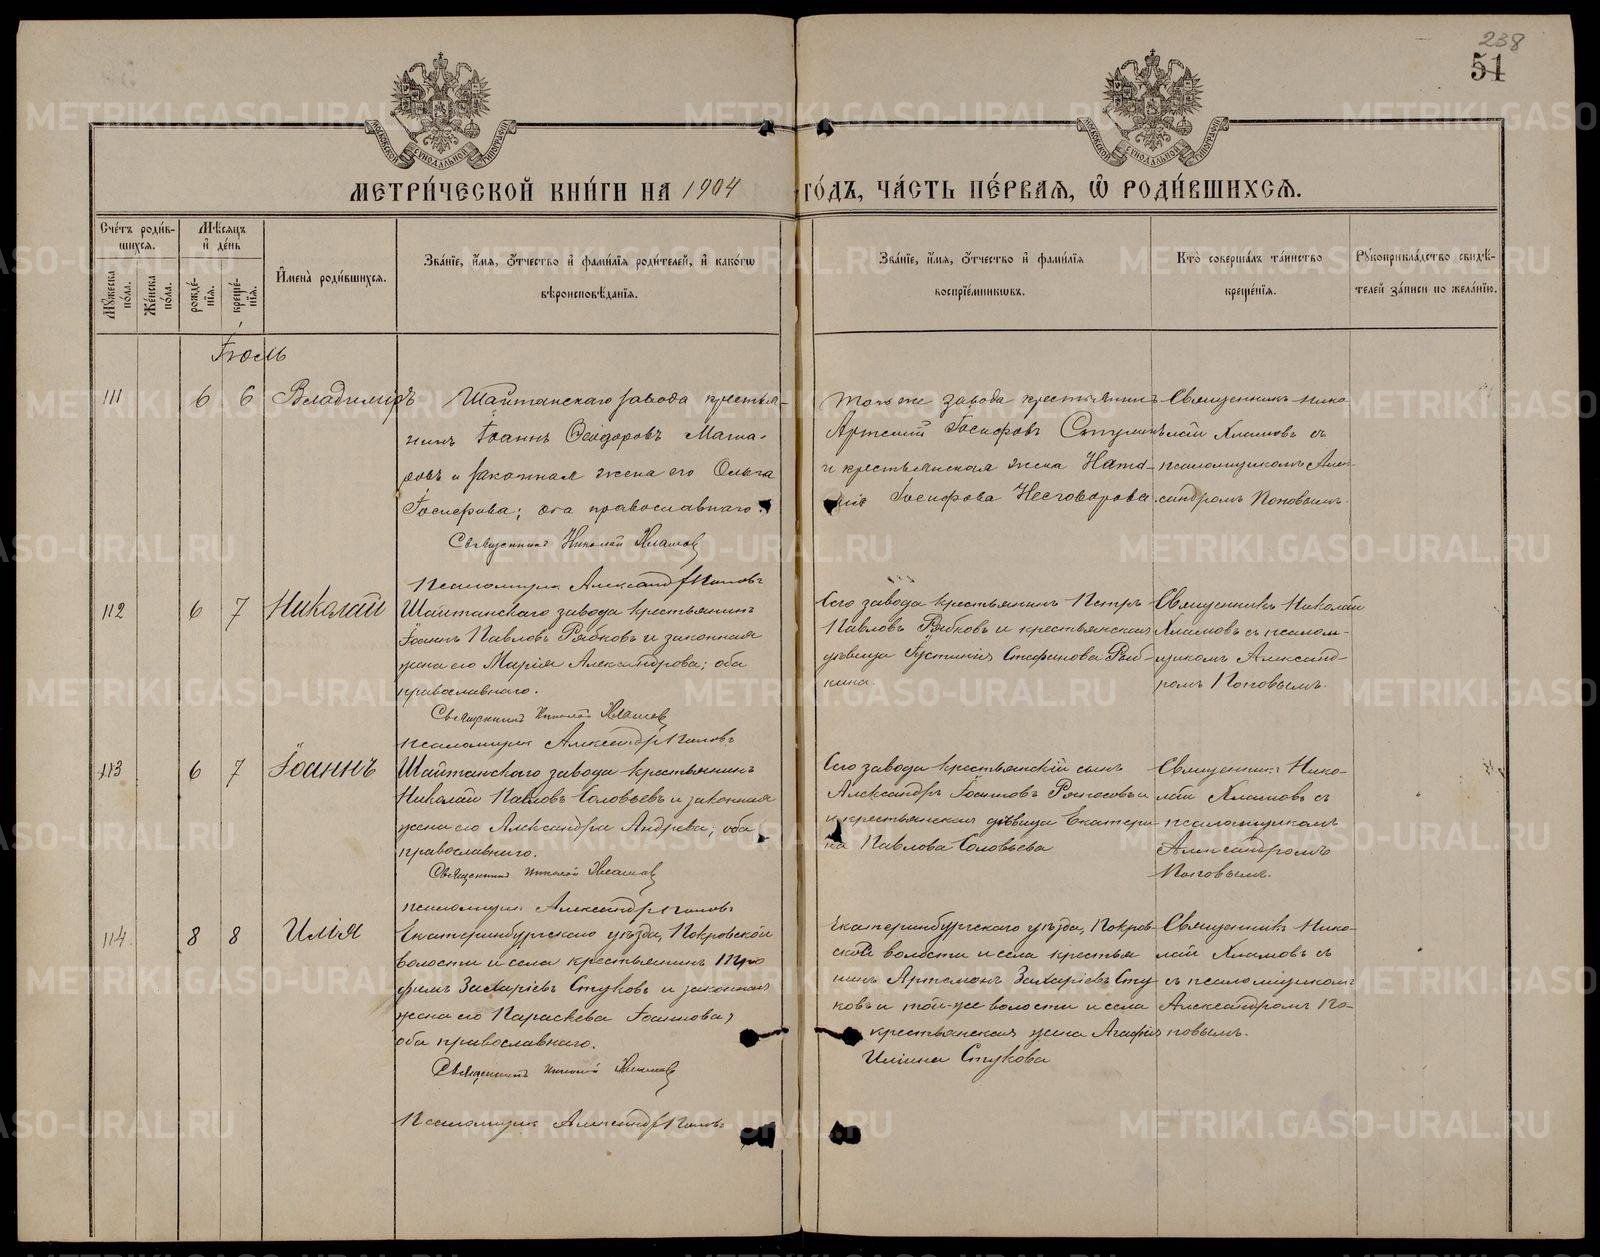 238
51
МЕТРИ́ЧЕСКОЙ КНИ́ГИ НА 1904 ГО́ДЪ, ЧА́СТЬ ПЕ́РВАЯ, Ѡ РОДИ́ВШИХСЯ.
Сче́тъ роди́в-
шихся.
Мѣ́сяцъ
и де́нь
Мꙋ́жеска по́ла.
Же́нска по́ла.
рожде́-
нїя.
креще́-
нїя.
И҆мена̀ роди́вшихся.
Зва́нїе, и҆́мя, ѻ҆́тчество и҆ фами́лїя роди́телей, и҆ како́гѡ
вѣроисповѣ́данїя.
Зва́нїе, и҆́мя, ѻ҆́тчество и҆ фами́лїя
воспрїе́мникѡвъ.
Кто̀ соверша́лъ та́инство
креще́нїя.
Рꙋкоприкла́дство свидѣ́-
телей за́писи по жела́нїю.
Іюль
111 6 6 Владиміръ
Шайтанскаго завода крестья-
нинъ Іоаннъ Ѳеодоровъ
и законная жена его Ольга
Іосифова; оба православнаго.
Священникъ Николай Хламовъ
Псаломщик Александр Поповъ
того же завода крестьянинъ
Артемій Іосифовъ
и крестьянская жена Ната-
лія Іосифова Несговорова
Священникъ Нико-
лай Хламовъ съ
псаломщикомъ Алек-
сандромъ Поповымъ.
112 6 7 Николай
Шайтанскаго завода крестьянинъ
Іоаннъ Павловъ Рябковъ и законная
жена его Марія Александрова; оба
православнаго.
Священникъ Николай Хламовъ
псаломщик Александр Поповъ
Сего завода крестьянинъ Петръ
Павловъ Рябковъ и крестьянская
дѣвица Іустинія Стефанова Ряб-
кина.
Священникъ Николай
Хламовъ съ псалом-
щикомъ Александ-
ромъ Поповымъ.
113 6 7 Іоаннъ
Шайтанскаго завода крестьянинъ
Николай Павловъ Соловьевъ и законная
жена его Александра Андрева; оба
православнаго.
Священникъ Николай Хламовъ
псаломщик Александр Поповъ
Сего завода крестьянскій сынъ
Александръ Іосифовъ
и крестьянская дѣвица Екатери-
на Павлова Соловьева
Священникъ Нико-
лай Хламовъ съ
псаломщикомъ
Александромъ
Поповымъ.
114 8 8 Илія
Екатеринбургскаго уѣзда, Покровской
волости и села крестьянинъ Тро-
фимъ Захаріевъ Стуковъ и законная
жена его Параскева Іоаннова,
оба православнаго.
Священникъ Николай Хламовъ
Псаломщик Александр Поповъ
Екатеринбургскаго уѣзда, Покров-
ской волости и села крестья
нинъ Артемонъ Захаріевъ Сту-
ковъ и той-же волости и села
крестьянская жена Агафія
Иліина Стукова
Священникъ Нико-
лай Хламовъ съ
съ псаломщикомъ
Александромъ По-
повымъ.